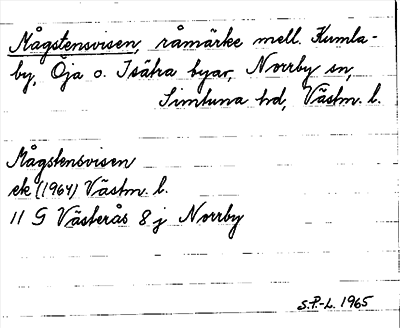 Mågstensvisen, råmärke mell. Kumla-
by, Öja o. Isätra byar, Norrby sn,
Simtuna hd, Västm. l.
Mågstensvisen
ek (1964) Västm. l.
11 G Västerås 8 j Norrby
S.P.-L. 1965